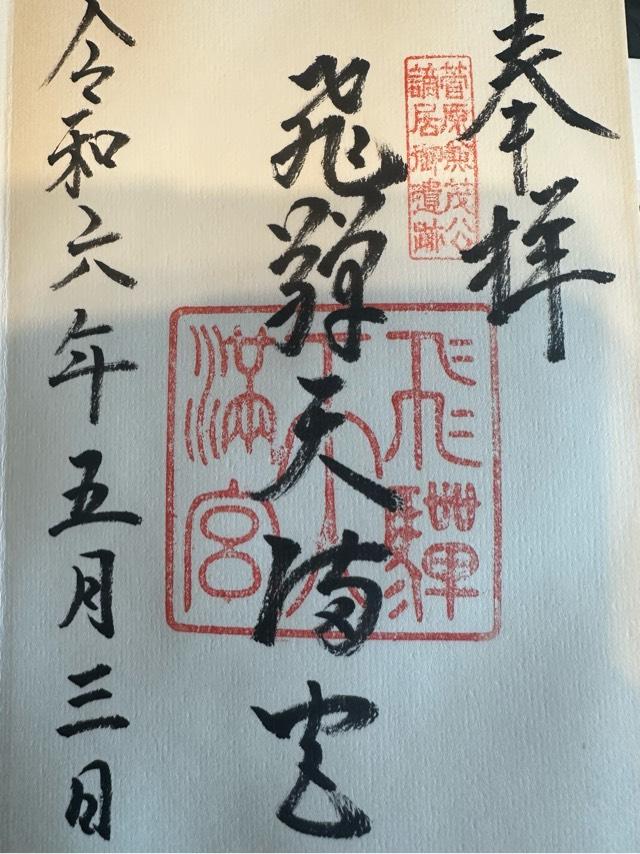 奉拝
菅原兼茂公
謫居御遺跡
飛騨天満宮
飛騨
天
満宮
令和六年五月三日